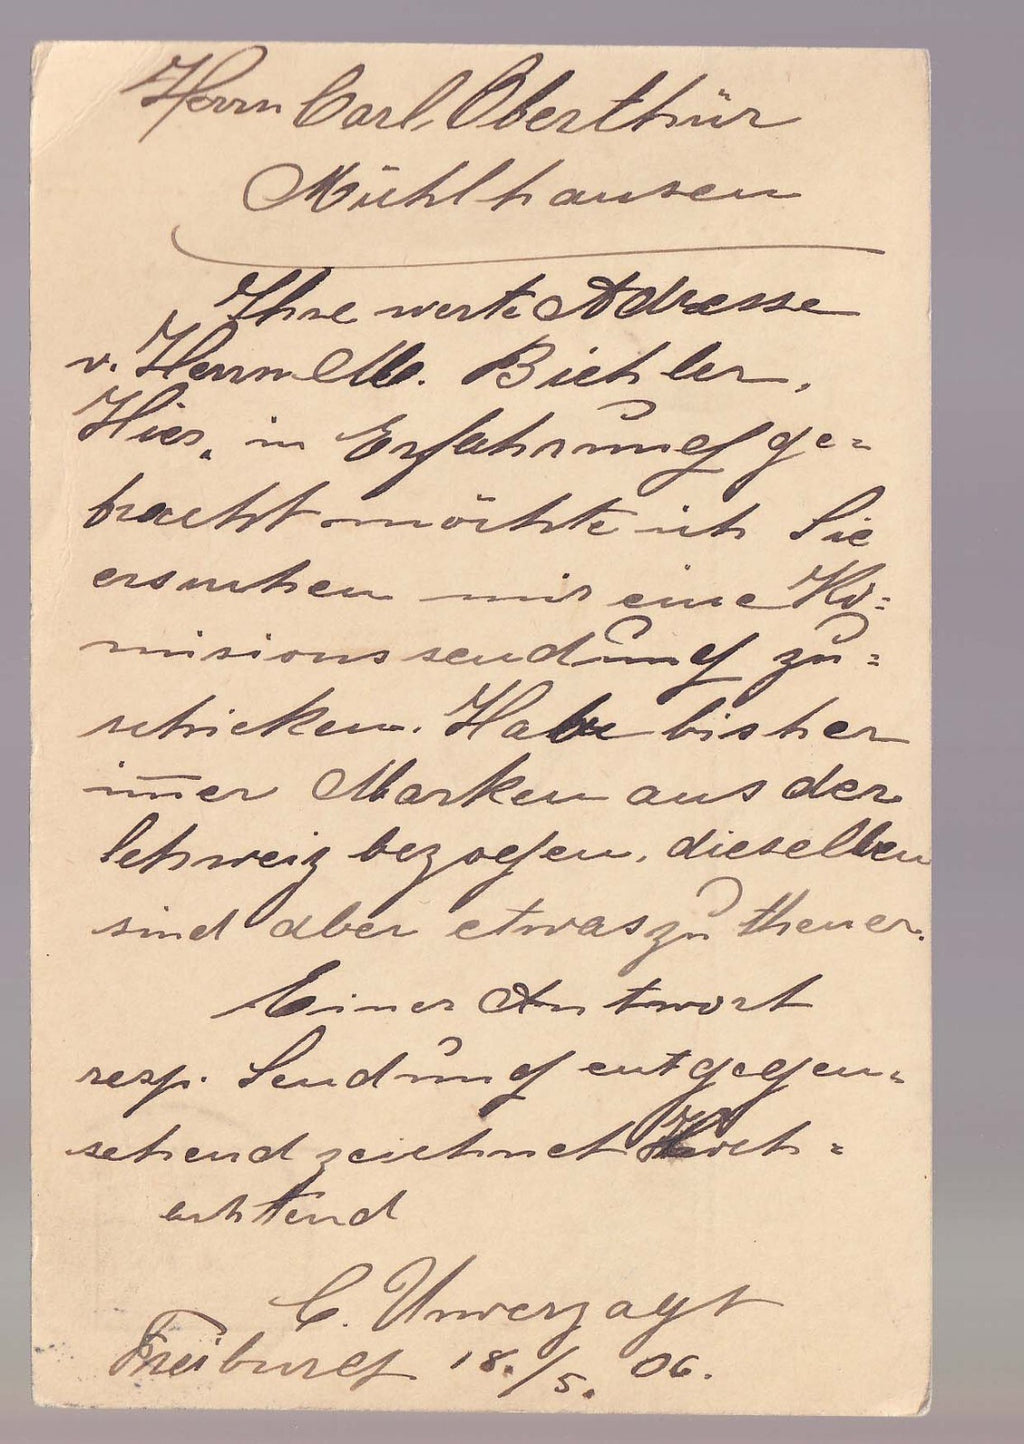 Herrn Carl Oberthür
Mühlhausen
Ihre werte Adresse
v. Herrn M. Bichler,
Hier, in Erfahrung ge=
bracht möchte ich Sie
ersuchen mir eine Ko=
misionssendung zu=
schicken. Habe bisher
im̅er Marken aus der
Schweiz bezogen, dieselben
sind aber etwas zu theuer.
Einer Antwort
resp. Sendung entgegen=
sehend zeichnet Hoch=
achtend
C. Unverzagt
Freiburg 18./5. 06.